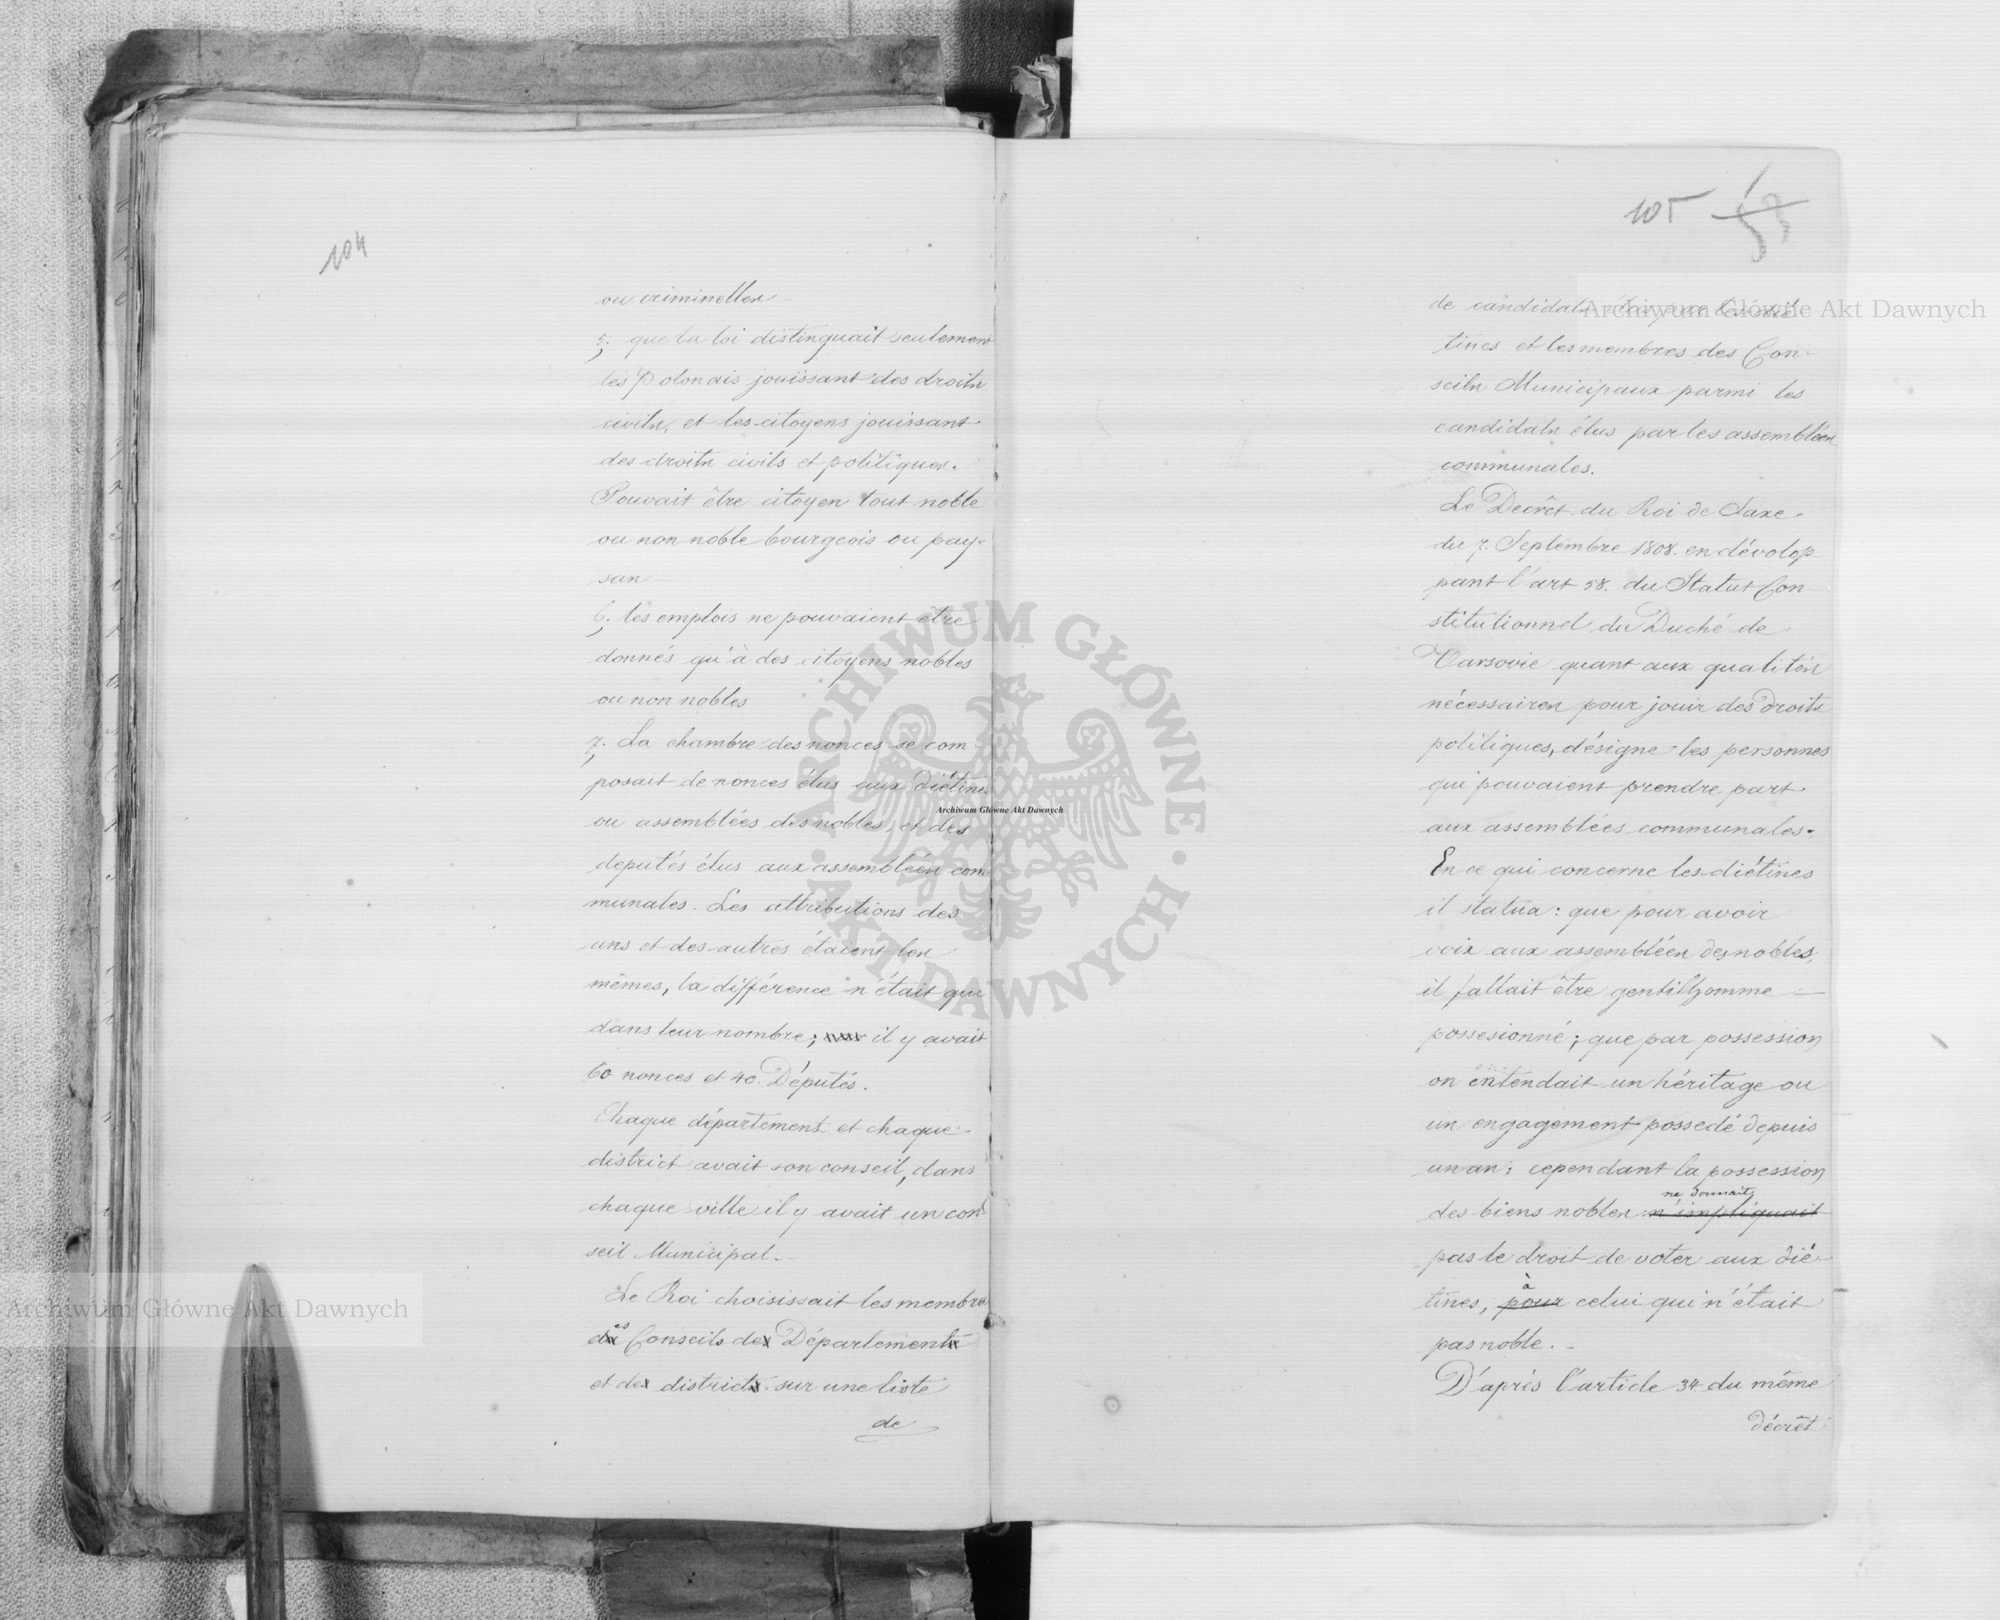 104
ou criminelles
5; que la loi distinguait seulement
les Polonais jouissant des droits
civils, et les citoyens jouissant
des droits civils et politiques.
Pouvait être citoyen tout noble
ou non noble bourgeois ou pay-
san
6; les emplois ne pouvaient être
donnés qu'à des citoyens nobles
ou non nobles
7; La chambre des nonces se com
posait de nonces élus aux diétines
ou assemblées des nobles, et des
deputés élus aux assemblées com-
munales. Les attributions des
uns et des autres étaient les
mêmes, la différence n'était que
dans leur nombre; il y avait
60 nonces et 40. Députés.
Chaque département et chaque
district avait son conseil, dans
chaque ville il y avait un con
seil Municipal.
Le Roi choisissait les membres
des Conseils de Département
et de district sur une liste
de
105
de candidats élus par les dié
tines et les membres des Con-
seils Municipaux parmi les
candidats élus par les assemblées
communales.
Le Decrêt du Roi de Saxe
du 7. Septembre 1808. en dévolop
pant l'art 58. du Statut Con
stitutionnel du Duché de
Varsovie quant aux qualités
nécessaires pour jouir des droits
politiques, désigne les personnes
qui pouvaient prendre part
aux assemblées communales.
En ce qui concerne les diétines
il statua: que pour avoir
voix aux assemblées des nobles,
il fallait être gentilhomme
possesionné; que par possession
on entendait un héritage ou
un engagement possedé depuis
un an; cependant la possession
ne donnait
des biens nobles n'impliquait
pas le droit de voter aux dié-
à
tines, pour celui qui n'était
pas noble.
D'après l'article 34 du même
décrêt
Archiwum Główne Akt Dawnych
Archiwum Główne Akt Dawnych
Archiwum Główne Akt Dawnych
ARCHIWUM GŁÓWNE · AKT DAWNYCH ·